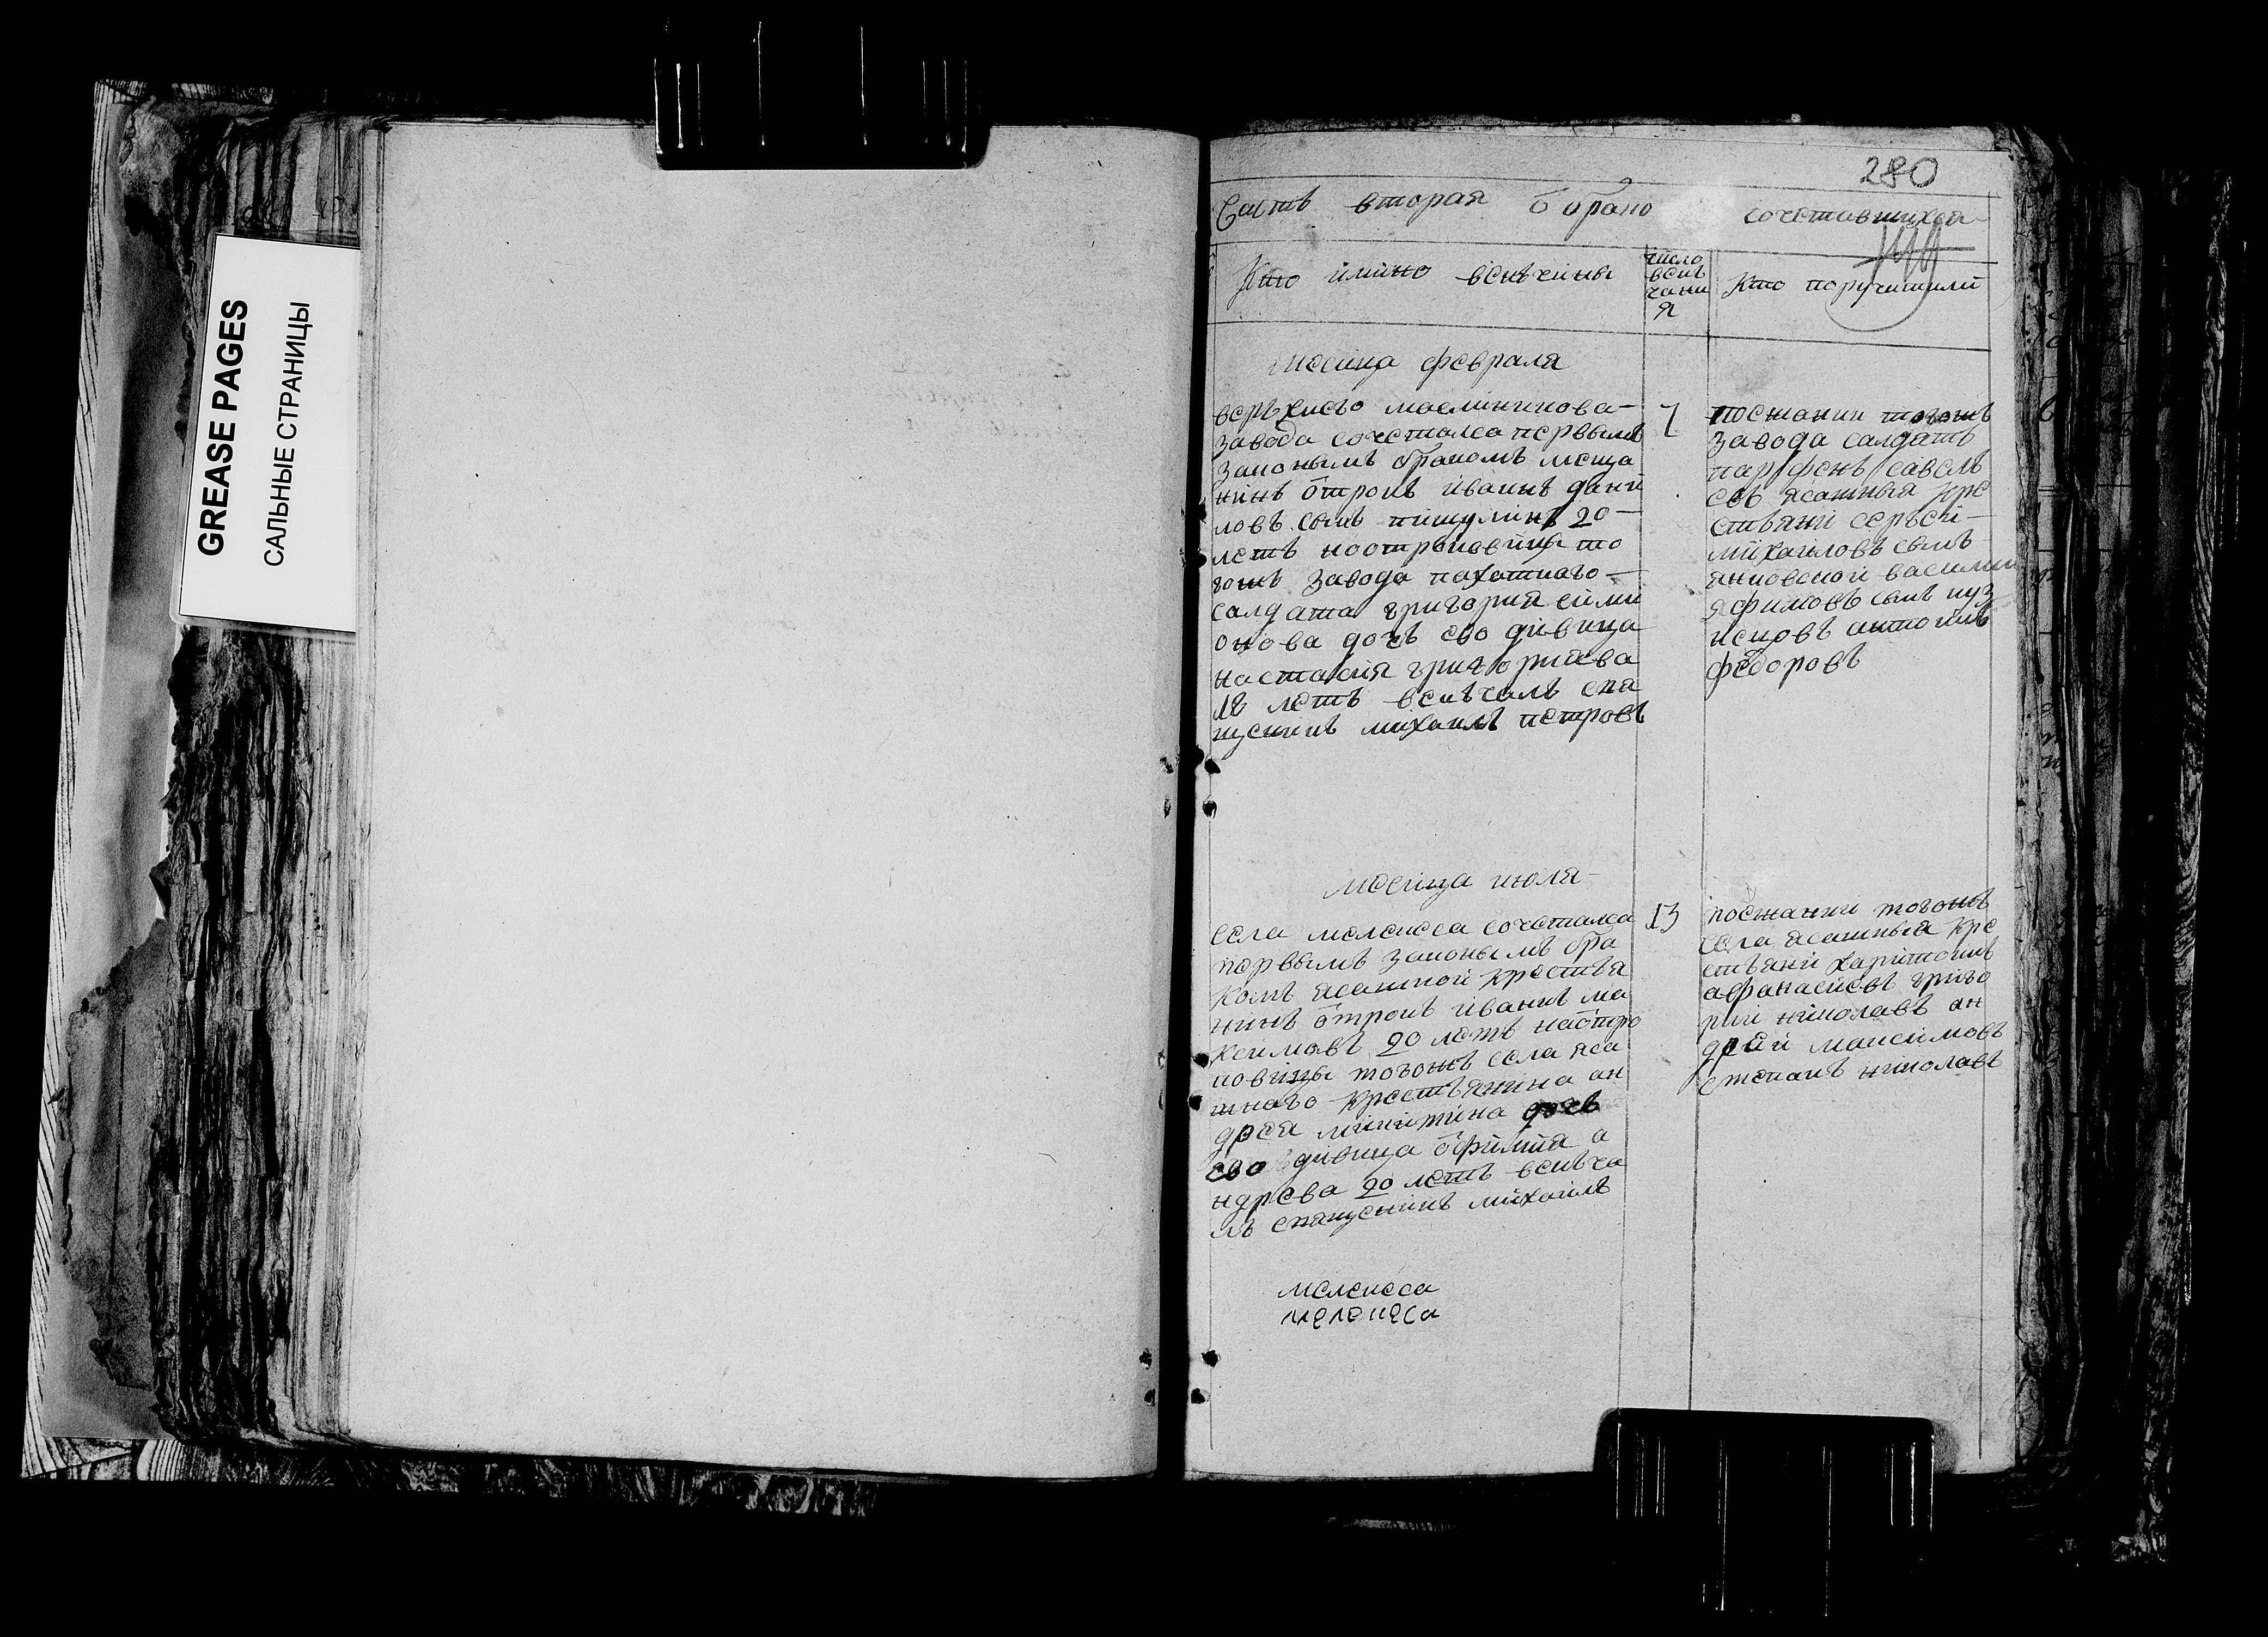 GREASE PAGES
САЛЬНЫЕ СТРАНИЦЫ
280
Часть вторая о брако сочетавшихся
Кто имино венчины
число
венъ
чани
я
Кто поручители
месица февраля
завода сочетался первымъ
законымъ бракомъ меща
нинъ отрокъ иванъ дани
ловъ сынъ 20
летъ поотроковицы то
гожъ завода пахотнаго
салдата григория сими
онова дочь ево дивица
настасия григориева
18 летъ венчалъ свя
щеникъ михаилъ петровъ
7
посжании тогожъ
завода салдатъ
парфенъ савель
евъ ясашныя кре
стьяни серьгей
михаиловъ сынъ
янковской василии
яфимовъ сынъ куз
нецовъ антонъ
федоровъ
месица июля
села мелекеса сочетался
первымъ законымъ бра
комъ ясашной крестья
нинъ отрокъ иванъ ма
ксимовъ 20 летъ наотро
ковицы тогожъ села яса
шнаго крестьянина ан
дрея никитина дочь
ево дивица офимия а
ндрева 20 летъ венъча
лъ свящсникъ михаилъ
13
посжании тогожъ
села ясашныя кре
стьяни харитонъ
афанасиевъ григо
рии николавъ ан
дреи максимовъ
степанъ николавъ
мелекеса
мелекеса